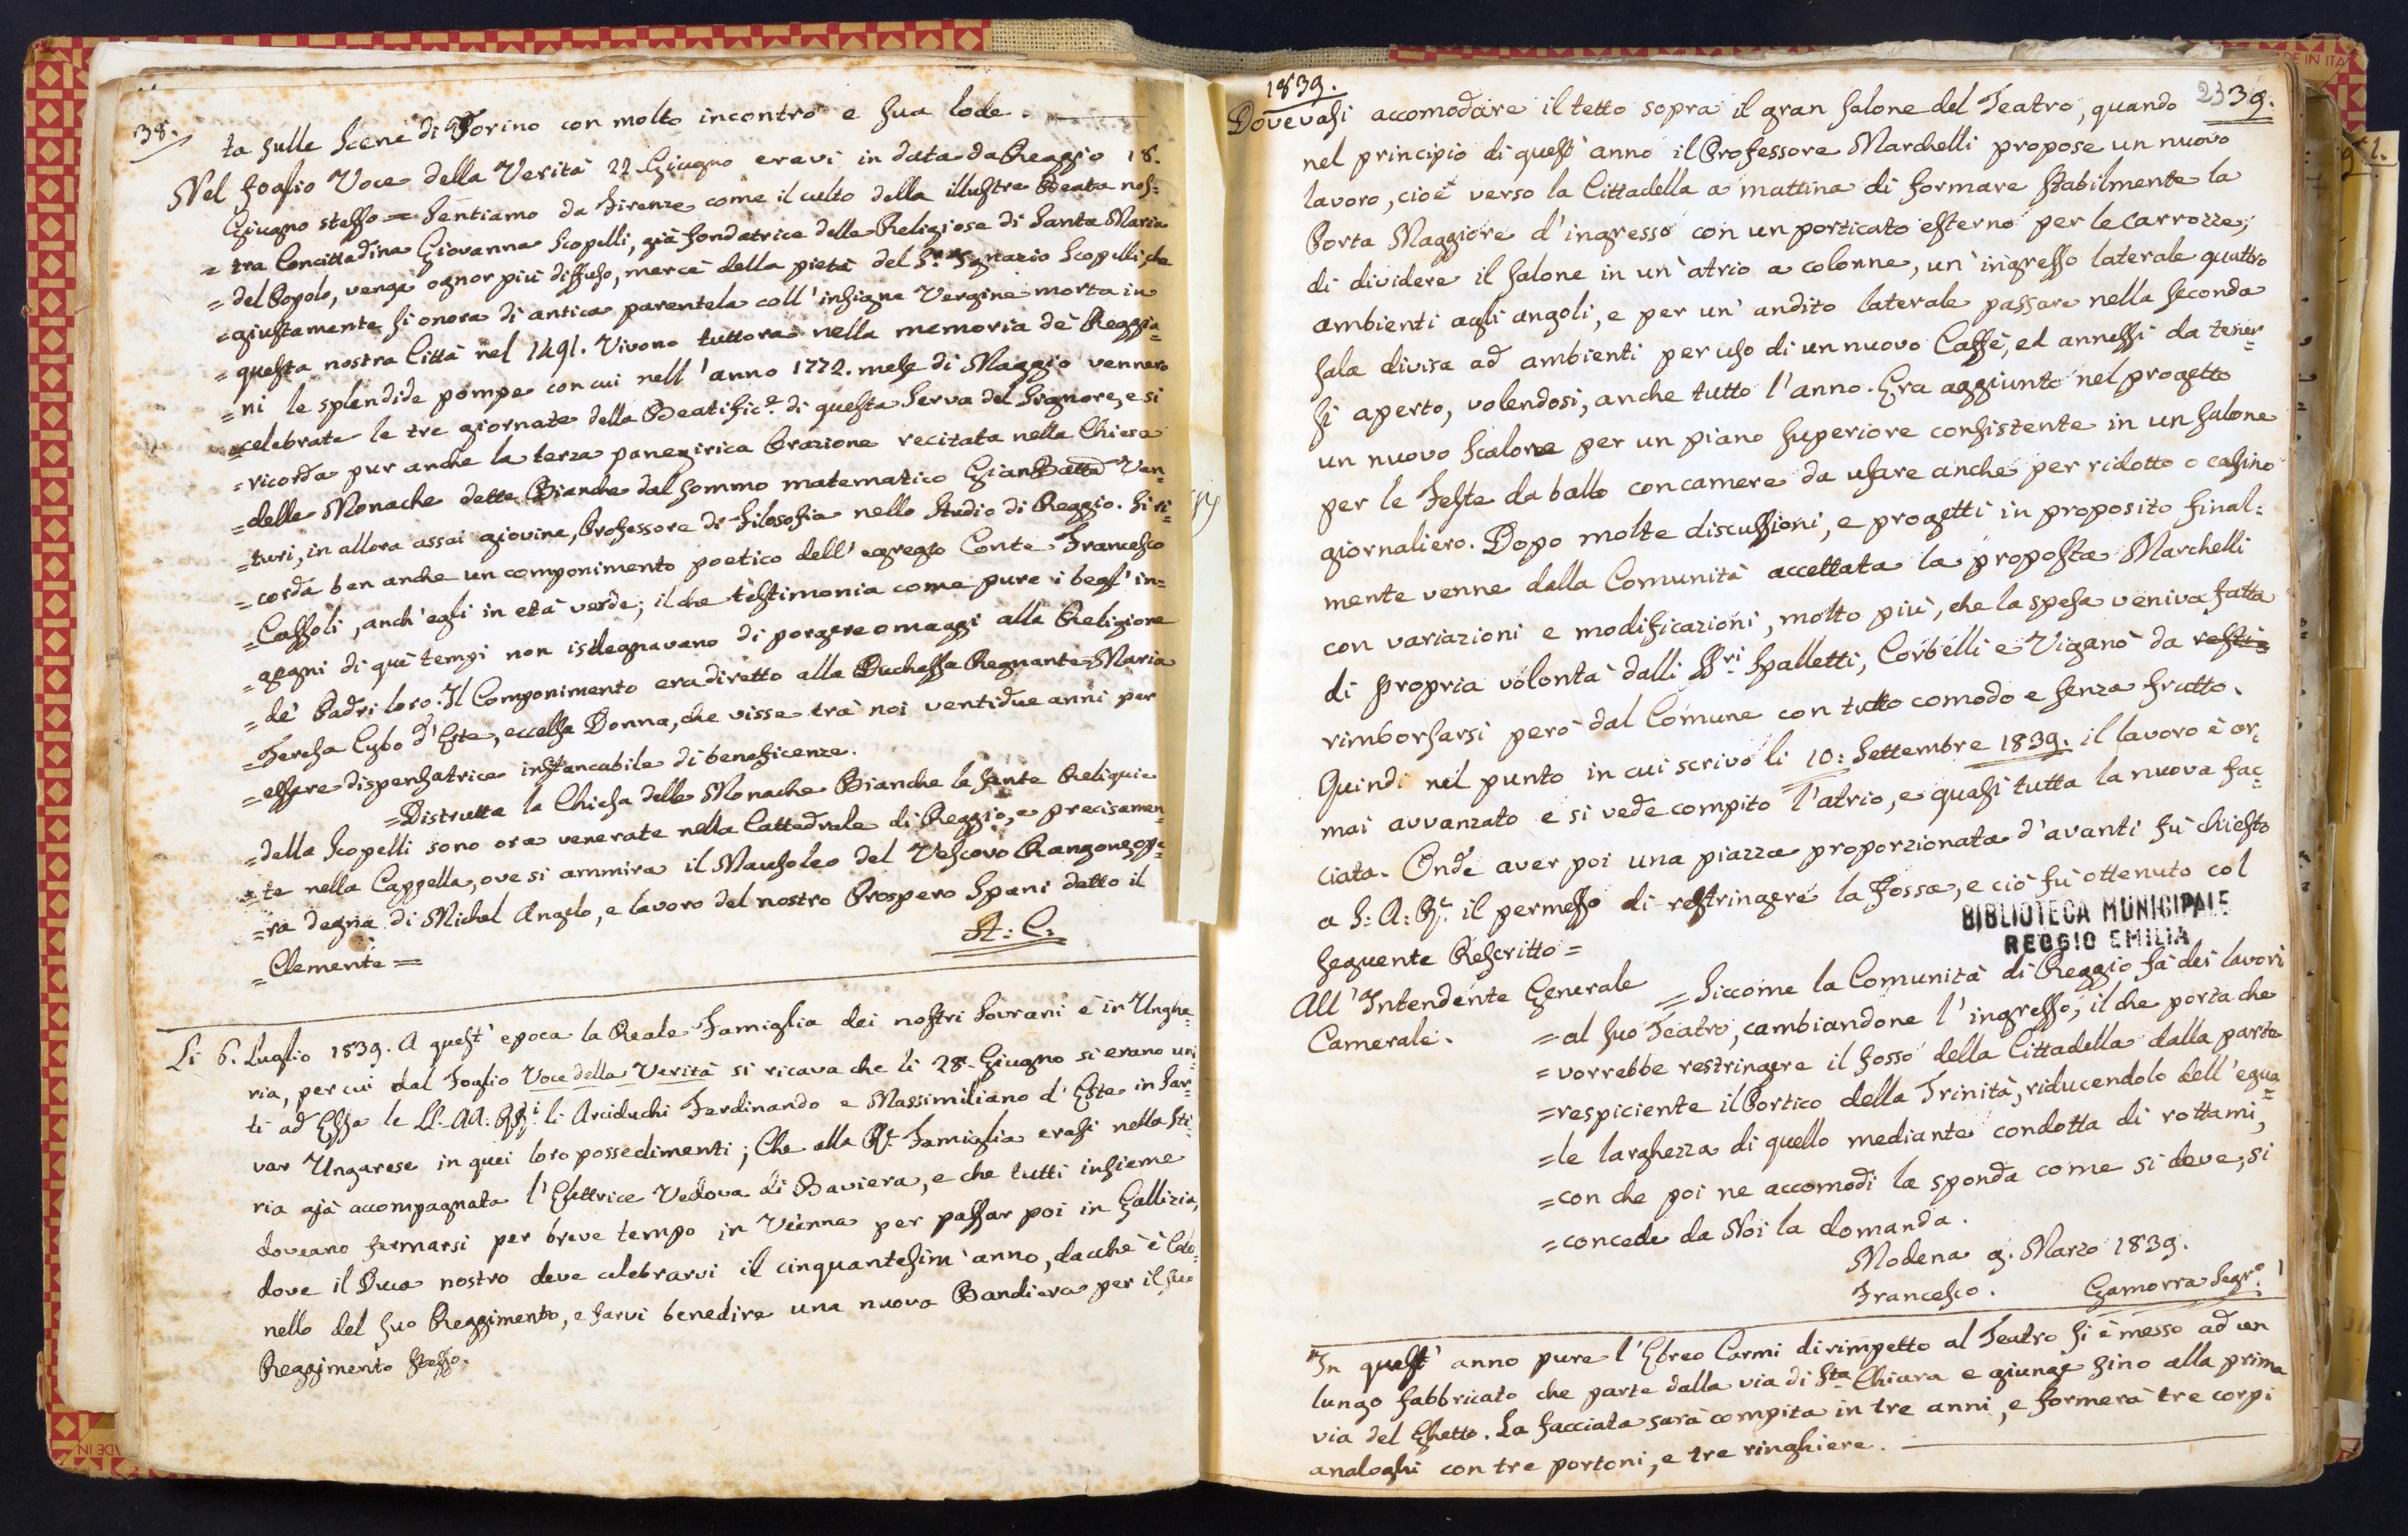 38.
ta sulle Scene di Torino con molto incontro e sua lode.
Nel foglio Voce della Verità 22 Giugno eravi in data da Reggio 18.
Giugno stesso = Sentiamo da Firenze come il culto della illustre Beata nos=
= tra Concittadina Giovanna Scopelli, già fondatrice delle Religiose di Santa Maria
= del Popolo, venga ognor più diffuso, mercè della pietà del Sr. Ignazio Scopelli, che
= giustamente si onora di antica parentela coll'insigne Vergine morta in
= questa nostra Città nel 1491. Vivono tuttora nella memoria de' Reggia=
= ni le splendide pompe con cui nell'anno 1772. mese di Maggio vennero
= celebrate le tre giornate della Beatific.e di questa Serva del Signore, e si
= ricorda pur anche la terza panegirica Orazione recitata nella Chiesa
= delle Monache dette Bianche dal sommo matematico GianBatta Ven=
= turi, in allora assai giovine, Professore di Filosofia nello Studio di Reggio. Si ri=
= corda ben anche un componimento poetico dell'egregio Conte Francesco
= Cassoli, anch'egli in età verde; il che testimonia come pure i begl'in=
= gegni di que' tempi non isdegnavano di porgere omaggi alla Religione
= de' Padri loro. Il Componimento era diretto alla Duchessa Regnante Maria
= Teresa Cybo d'Este, eccelsa Donna, che visse tra noi ventidue anni per
= essere dispensatrice instancabile di beneficenze.
= Distrutta la Chiesa delle Monache Bianche le sante Reliquie
= della Scopelli sono ora venerate nella Cattedrale di Reggio, e precisamen=
= te nella Cappella, ove si ammira il Mausoleo del Vescovo Rangone, ope=
= ra degna di Michel Angelo, e lavoro del nostro Prospero Spani detto il
= Clemente =
A: C:
Li 6. Luglio 1839. A quest'epoca la Reale Famiglia dei nostri Sovrani è in Unghe=
ria, per cui dal Foglio Voce della Verità si ricava che li 28. Giugno si erano uni=
ti ad Essa le LL. AA: RR.i li Arciduchi Ferdinando e Massimiliano d'Este in Sar=
var Ungarese in quei loro possedimenti; Che alla R.e Famiglia erasi nella Sti=
ria già accompagnata l'Elettrice Vedova di Baviera, e che tutti insieme
doveano fermarsi per breve tempo in Vienna per passar poi in Gallizia,
dove il Duca nostro deve celebrarvi il cinquantesim'anno, dacchè è Colo=
nello del suo Reggimento, e farvi benedire una nuova Bandiera per il suo
Reggimento stesso.
1839.
2339.
Dovevasi accomodare il tetto sopra il gran salone del Teatro, quando
nel principio di quest'anno il Professore Marchelli propose un nuovo
lavoro, cioè verso la Cittadella a mattina di formare stabilmente la
Porta Maggiore d'ingresso con un porticato esterno per le carrozze;
di dividere il salone in un'atrio a colonne, un'ingresso laterale quattro
ambienti agli angoli, e per un'andito laterale passare nella seconda
sala divisa ad ambienti per uso di un nuovo Caffè, ed annessi da tener=
si aperto, volendosi, anche tutto l'anno. Era aggiunto nel progetto
un nuovo Scalone per un piano superiore consistente in un salone
per le Feste da ballo con camere da usare anche per ridotto o casino
giornaliero. Dopo molte discussioni, e progetti in proposito final=
mente venne dalla Comunità accettata la proposta Marchelli
con variazioni e modificazioni, molto più, che la spesa veniva fatta
di propria volontà dalli SSri Spalletti, Corbelli e Viganò da resti=
rimborsarsi però dal Comune con tutto comodo e senza frutto.
Quindi nel punto in cui scrivo li 10: Settembre 1839. il lavoro è or=
mai avvanzato e si vede compito l'atrio, e quasi tutta la nuova fac=
ciata. Onde aver poi una piazza proporzionata d'avanti fù chiesto
a S: A: R.e il permesso di restringere la Fossa, e ciò fù ottenuto col
BIBLIOTECA MUNICIPALE
REGGIO EMILIA
seguente Rescritto =
All'Intendente Generale
Camerale.
= Siccome la Comunità di Reggio fà dei lavori
= al suo Teatro, cambiandone l'ingresso, il che porta che
= vorrebbe restringere il fosso della Cittadella dalla parte
= respiciente il Portico della Trinità, riducendolo dell'egua=
= le larghezza di quello mediante condotta di rottami,
= con che poi ne accomodi la sponda come si deve, si
= concede da Noi la domanda.
Modena 9. Marzo 1839.
Francesco. Gamorra Segr.o
In quest'anno pure l'Ebreo Carmi dirimpetto al Teatro si è messo ad un
lungo fabbricato che parte dalla via di Sta Chiara e giunge sino alla prima
via del Ghetto. La facciata sarà compita in tre anni, e formerà tre corpi
analoghi con tre portoni, e tre ringhiere.